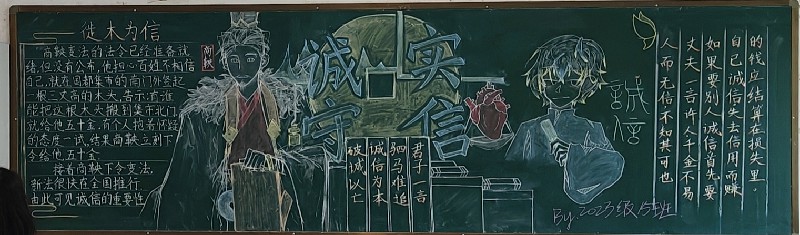 徙木为信
"商鞅变法的法令已经准备就
绪,但没有公布,他担心百姓不相信
自己,就在国都集市的南门外竖起
一根三丈高的木头,告示:有谁
能把这根木头搬到集市北门
就给他五十金,有个人抱着怀疑
的态度一试,结果商鞅立刻下
令给他五十金
接着商鞅下令变法,
新法很快在全国推行,
由此可见诚信的重要性
商鞅
诚实
守信
君子一言
驷马难追
诚信为本
破诚以亡
誠信
的钱应结算在损失里.
自己诚信失去信用而赚
如果要别人诚信首先要
丈夫一言许人千金不易
人而无信不知其可也
By:2023级